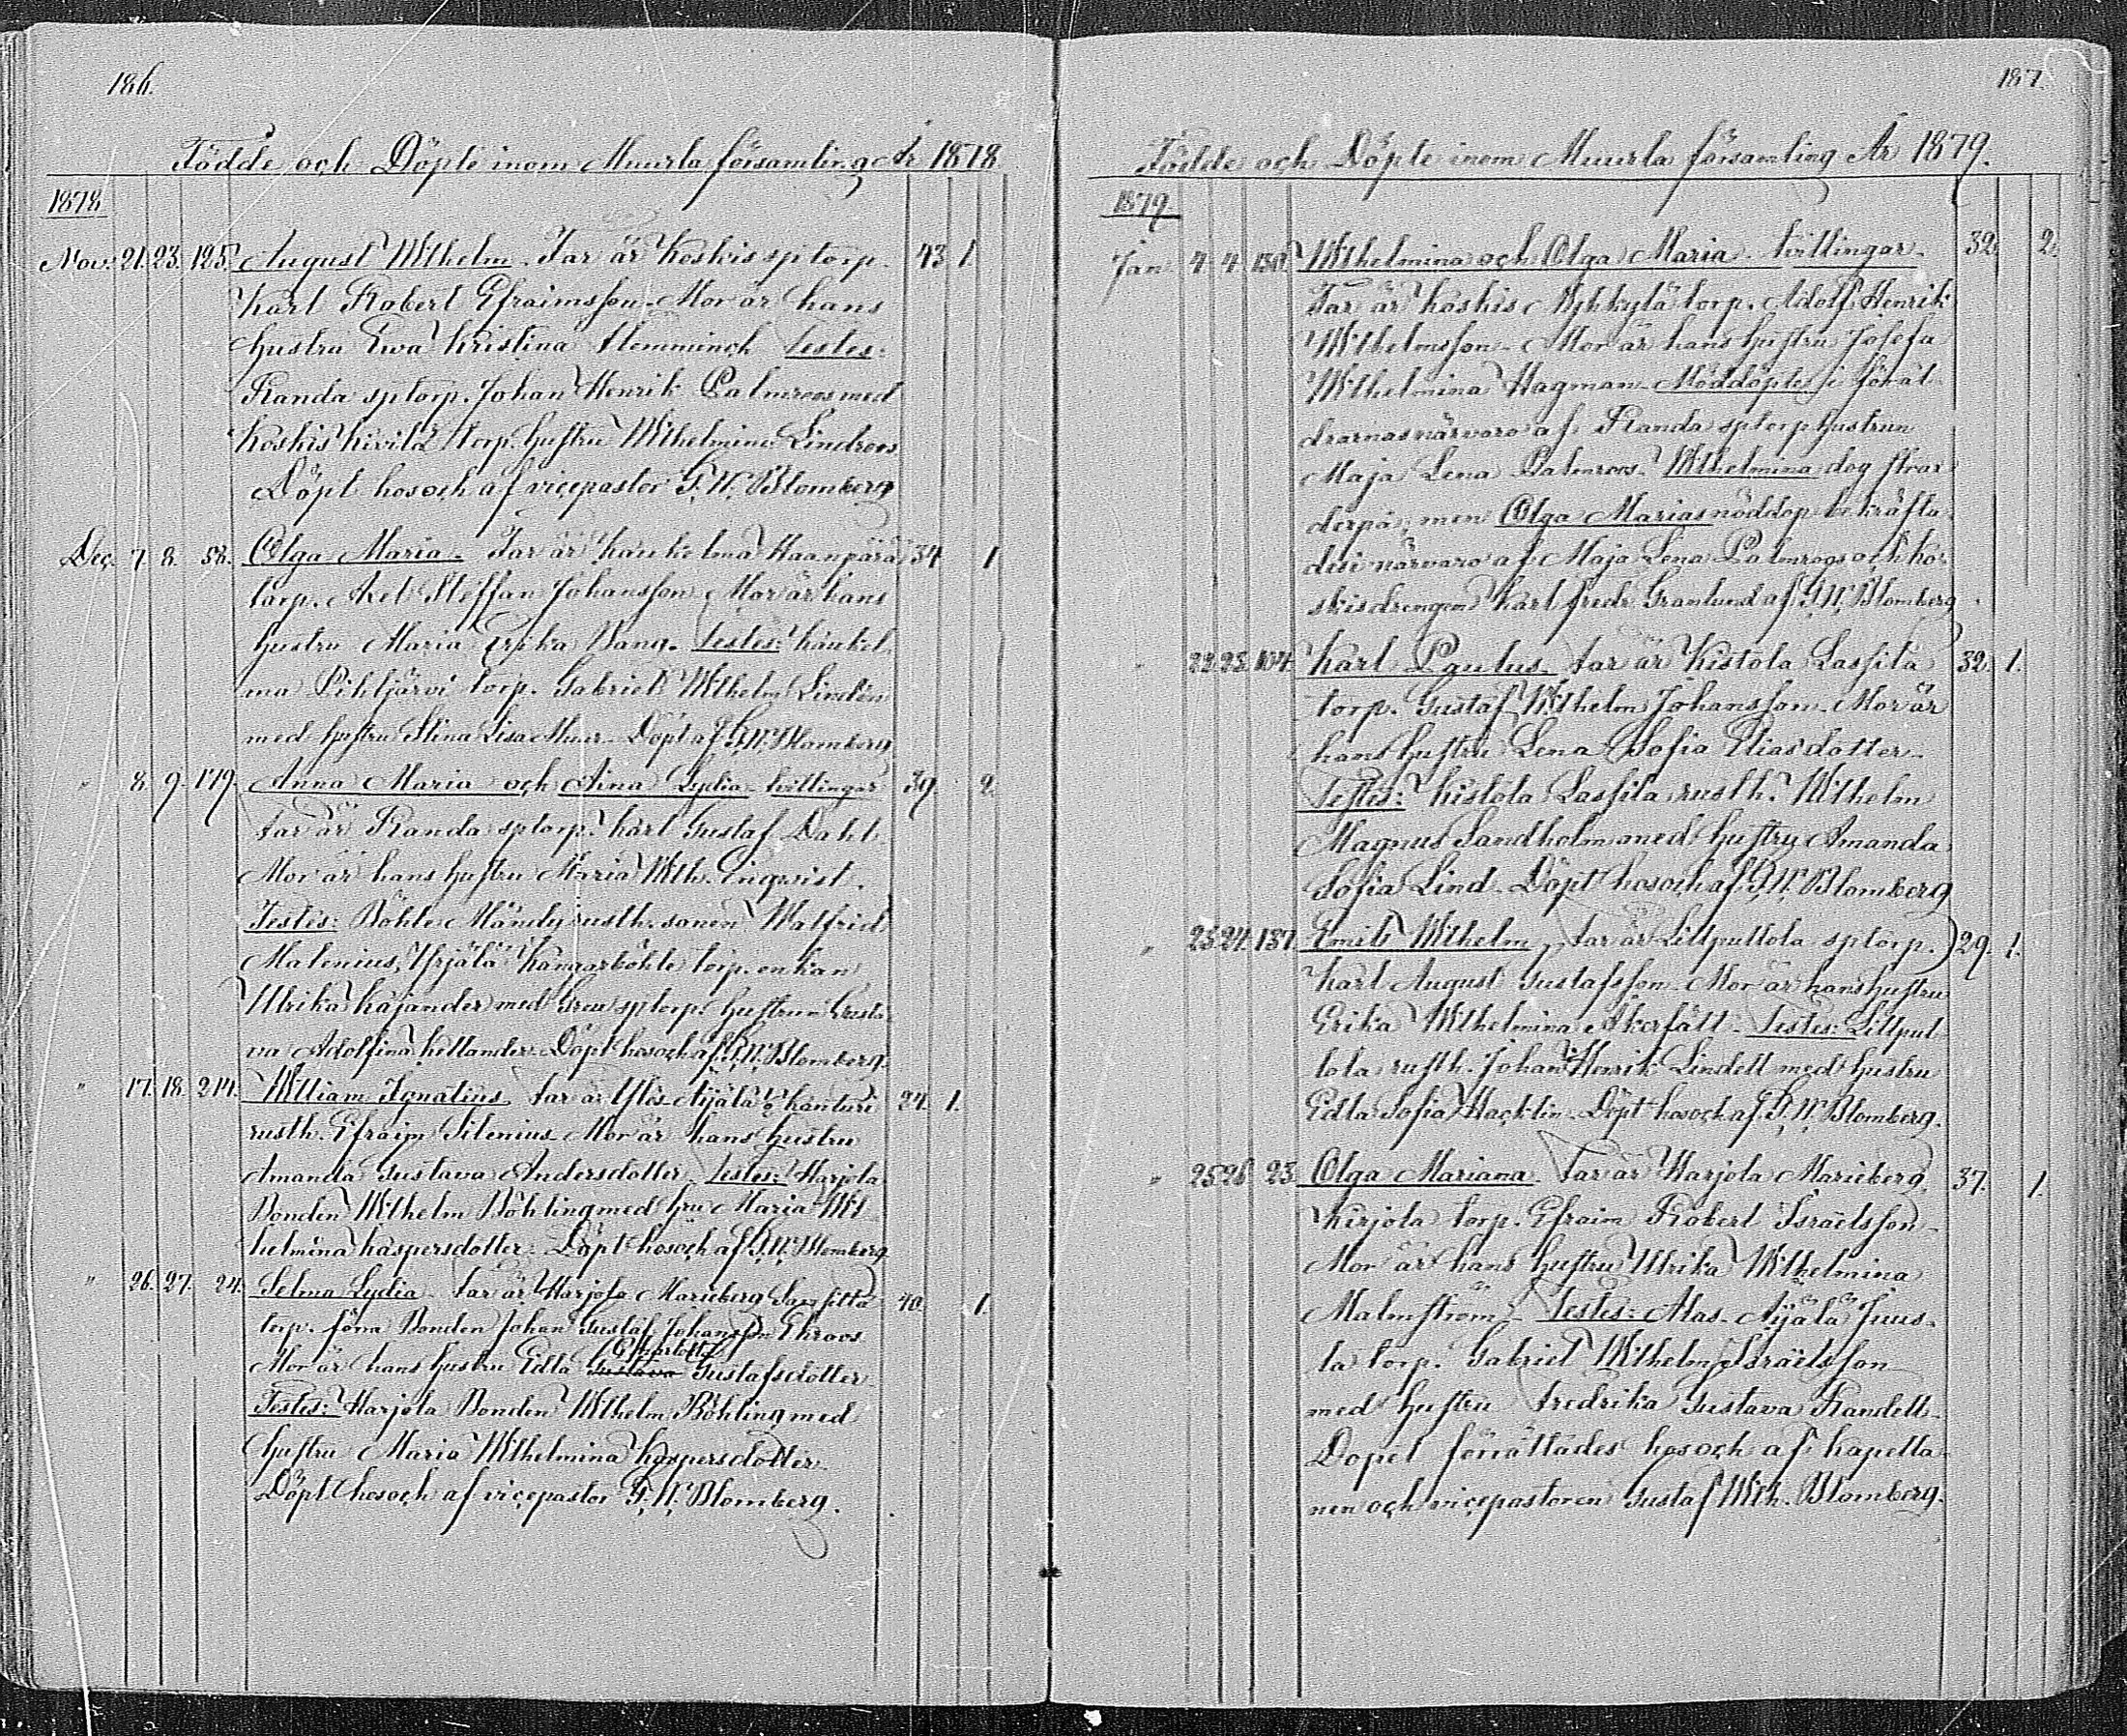 186.
Födde och Döpte inom Muurla församling År 1878
1878
Nov. 21. 23. 125. August Wilhelm. Far är Koskis sptorp. 43 1
Karl Robert Efraimsson. Mor är hans
hustru Ewa Kristina Flemminch Testes:
Randa sptorp. Johan Henrik Palmroos med
Koskis Kivilä torp. hustru Wilhelmina Lindroos
Döpt hos och af vicepastor G. W. Blomberg
Dec. 7. 8. 58. Olga Maria. Far är Kaukelma Haanpärä 34 1
torp. Axel Steffan Johansson. Mor är hans
hustru Maria Erika Bang. Testes: Kaukel
ma Pihljärvi torp. Gabriel Wilhelm Lindén
med hustru Stina Lisa Muur. Döpt af G. W. Blomberg
" 8. 9. 179. Anna Maria och Aina Lydia tvillingar 39. 2.
Far är Randa sptorp. Karl Gustaf Dahl.
Mor är hans hustru Maria Wilh. Enqvist.
Testes: Böhle Mändy rusth. sonen Walfrid
Malenius, Yrjälä Kangasböhle torp. enkan
Ulrika Kajander med Greu sptorp. hustrun Gusta
va Adolfina Hellander. Döpt hos och af G. W. Blomberg.
" 17. 18. 214. William Ignatius. Far är Ylös Äijälä Kanturi 24. 1.
rusth. Efraim Silenius. Mor är hans hustru
Amanda Gustava Andersdotter. Testes: Harjola
Bonden Wilhelm Böhling med hru Maria Wil
helmina Kaspersdotter. Döpt hos och af G. W. Blomberg
" 26. 27. 24. Selma Lydia. Far är Harjola Marieberg 40. 1.
torp. förra Bonden Johan Gustaf Johansson Ekroos
Charlotta
Mor är hans hustru Edla Gustava Gustafsdotter
Testes: Harjola Bonden Wilhelm Böhling med
hustru Maria Wilhelmina Kaspersdotter.
Döpt hos och af vicepastor G. W. Blomberg.
187.
Födde och Döpte inom Muurla församling År 1879.
1879.
Jan. 4. 4. 130. Wilhelmina och Olga Maria. tvillingar. 32 2.
Far är Koskis Nykkylä torp. Adolf Henrik
Wilhelmsson. Mor är hans hustru Josefa
Wilhelmina Hagman. Nöddöptes i föräl
drarnas närvaro af Randa sptorp hustrun
Maja Lena Palmroos. Wilhelmina dog strax
derpå, men Olga Marias nöddop bekräfta
des i närvaro af Maja Lena Palmroos och Ko
skis drengen Karl Fredr Granlund af G. W. Blomberg.
" 22. 23. 104. Karl Paulus. Far är Kistola Lassila 32. 1.
torp. Gustaf Wilhelm Johansson. Mor är
hans hustru Lena Sofia Eliasdotter.
Testes: Kistola Lassila rusth. Wilhelm
Magnus Sandholm med hustru Amanda
Sofia Lind. Döpt hos och af G. W. Blomberg
" 23. 24. 137. Emil Wilhelm. Far är Lillputtola sptorp. 29. 1.
Karl August Gustafsson. Mor är hans hustru
Erika Wilhelmina Åkerfält. Testes: Lillput
tola rusth. Johan Henrik Lindell med hustru
Edla Sofia Hacklin. Döpt hos och af G. W. Blomberg.
" 25 26 23. Olga Mariana. Far är Harjola Marieberg 37. 1.
Kirjola torp. Efraim Robert Israëlsson.
Mor är hans hustru Ulrika Wilhelmina
Malmström. Testes: Alas. Äijälä Juus
la torp. Gabriel Wilhelm Israëlsson
med hustru Fredrika Gustava Randell.
Dopet förrättades hos och af kapella
nen och vicepastoren Gustaf Wilh. Blomberg.